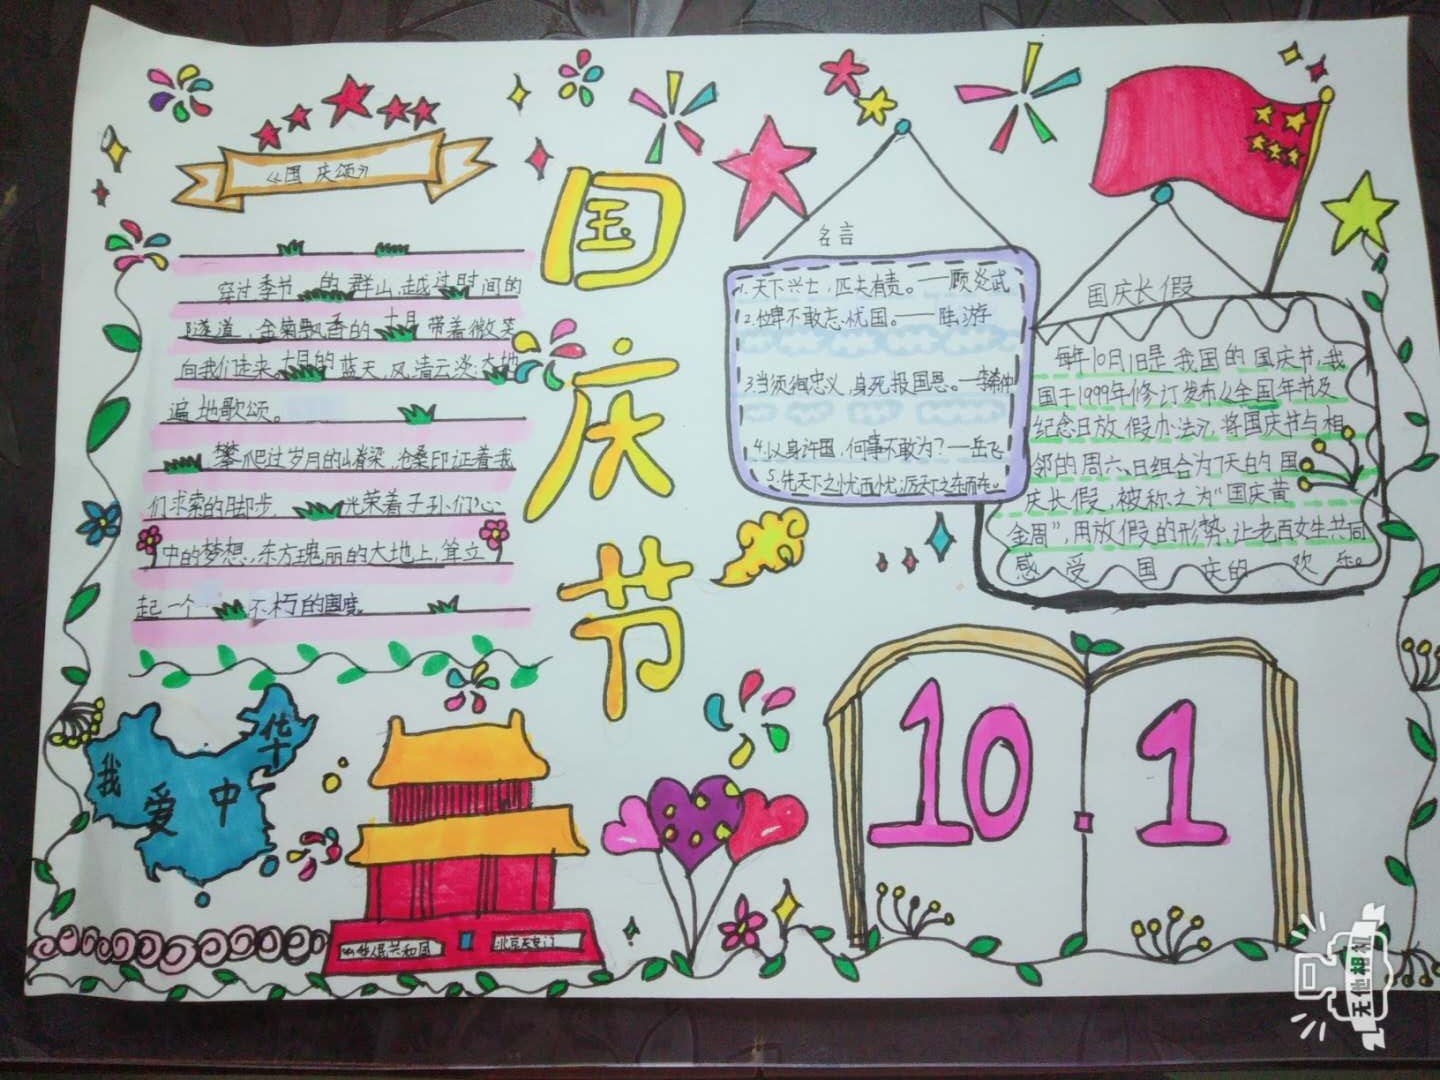 《国庆颂》
穿过季节的群山,越过时间的
隧道,金菊飘香的十月带着微笑
向我们走来,十月的蓝天,风清云淡,大地
遍地歌颂。
攀爬过岁月的山脊梁,沧桑印证着我
们求索的脚步 光荣着子孙们心
中的梦想,东方瑰丽的大地上,耸立
起一个 不朽的国度。
国
庆
节
名言
1.天下兴亡,匹夫有责。——顾炎武
2.位卑不敢忘忧国。——陆游
3.当须徇忠义,身死报国恩。—李希仲
4.以身许国,何事不敢为?—岳飞
5.先天下之忧而忧,后天下之乐而乐。
国庆长假
每年10月1日是我国的国庆节,我
国于1999年修订发布《全国年节及
纪念日放假办法》,将国庆节与相
邻的周六、日组合为7天的国
庆长假,被称之为“国庆黄
金周”,用放假的形势,让老百女生共同
感受国庆的欢乐。
我爱中华
中华人民共和国
北京天安门
10.1
无他相机